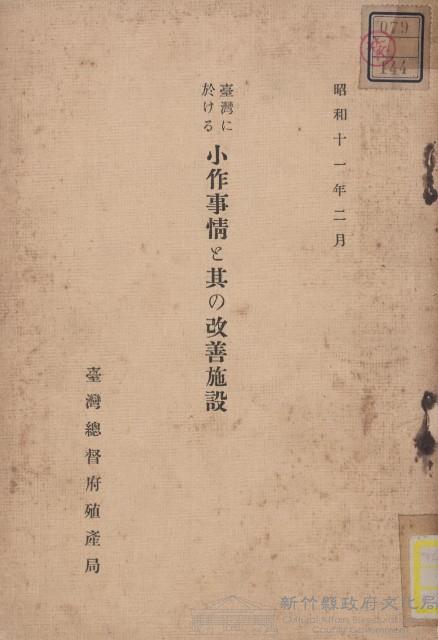 昭和十一年二月
臺灣に
於ける
小作事情と其の改善施設
臺灣總督府殖產局
079
144
新竹縣政府文化局
Cultural Affairs Bureau of
County Government